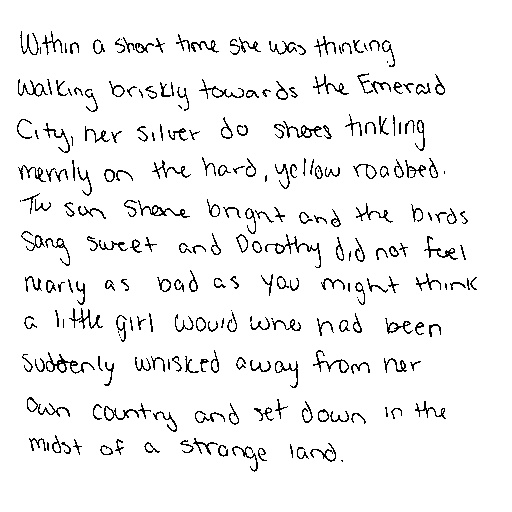 Within a short time she was thinking
walking briskly towards the Emerald
City, her silver do shoes tinkling
merrily on the hard, yellow roadbed.
The sun shone bright and the birds
sang sweet and Dorothy did not feel
nearly as bad as you might think
a little girl would who had been
suddenly whisked away from her
own country and set down in the
midst of a strange land.